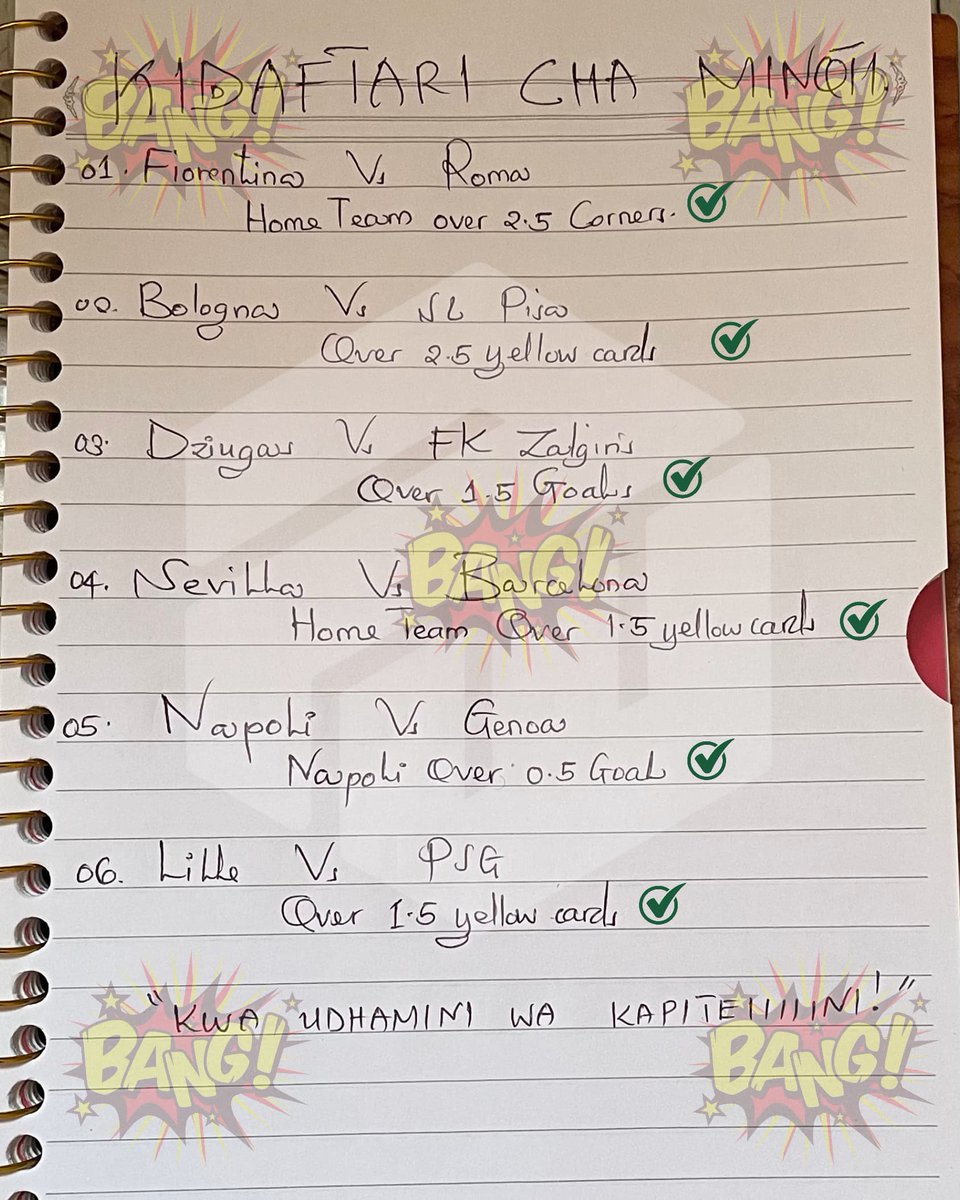 KIDAFTARI CHA MINOH.
BANG!
BANG!
01. Fiorentina Vs Roma
Home Team over 2.5 Corners.
02. Bologna Vs SC Pisa
Over 2.5 yellow cards
03. Dziugas Vs FK Zalgiris
Over 1.5 Goals
BANG!
04. Sevilla Vs Barcelona
Home Team Over 1.5 yellow cards
05. Napoli Vs Genoa
Napoli Over 0.5 Goal
06. Lille Vs PSG
Over 1.5 yellow cards
"KWA UDHAMINI WA KAPITEIIIIINI!"
BANG!
BANG!